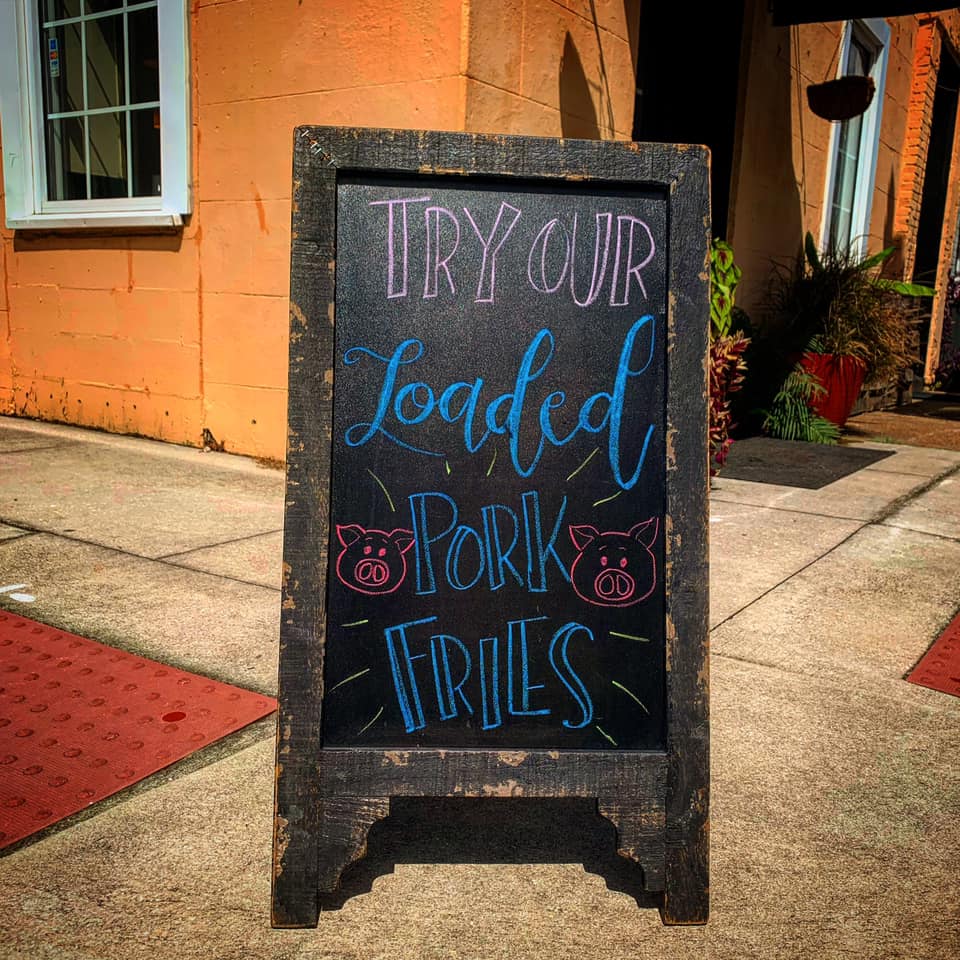 TRY OUR
Loaded
PORK
FRIES